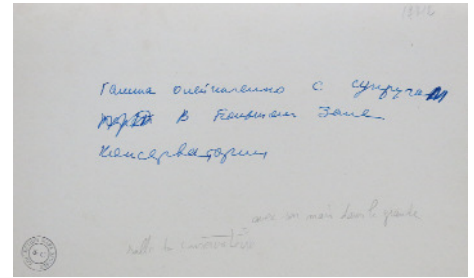 Галина Олейниченко с супругом
в Большом Зале
Консерватории
avec son mari dans la grande
salle du conservatoire